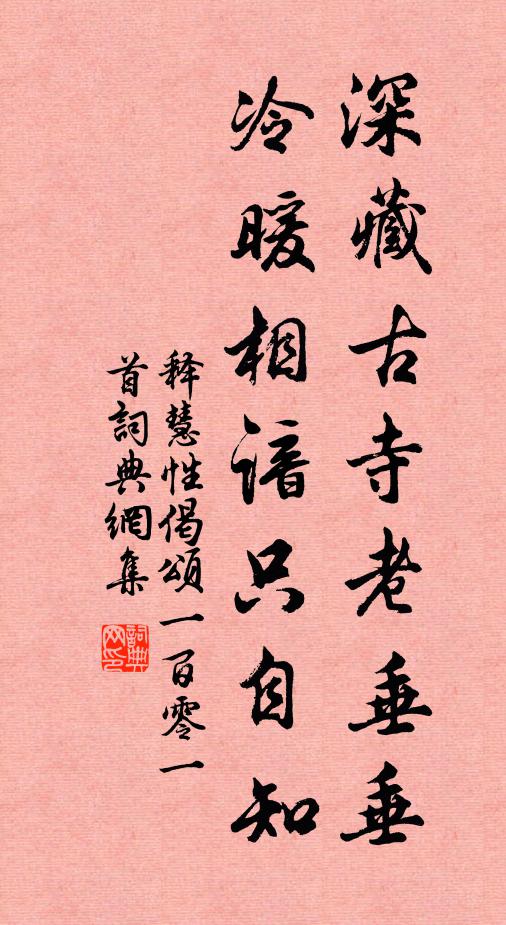 深藏古寺老垂垂
冷暖相諳只自知
释慧性偈頌一百零一
首詞典網集
詞典網印